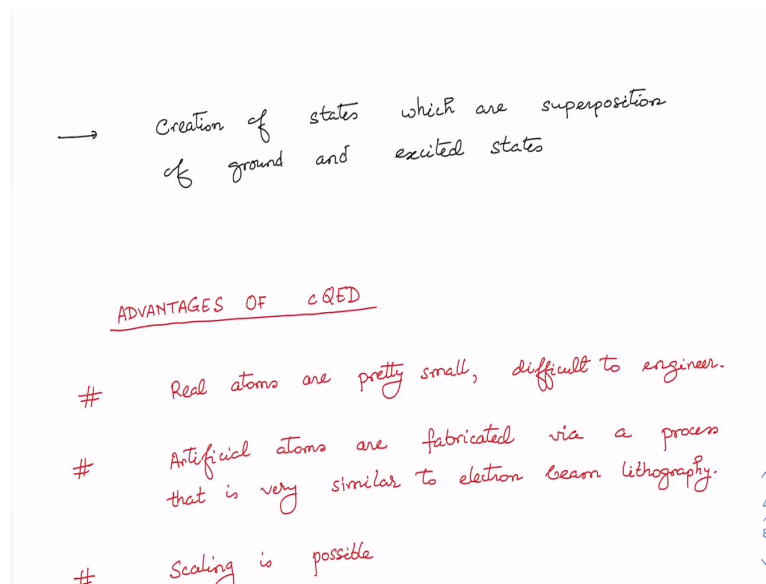 → Creation of states which are superposition
of ground and excited states
ADVANTAGES OF cQED
# Real atoms are pretty small, difficult to engineer.
# Artificial atoms are fabricated via a process
that is very similar to electron beam lithography.
# Scaling is possible